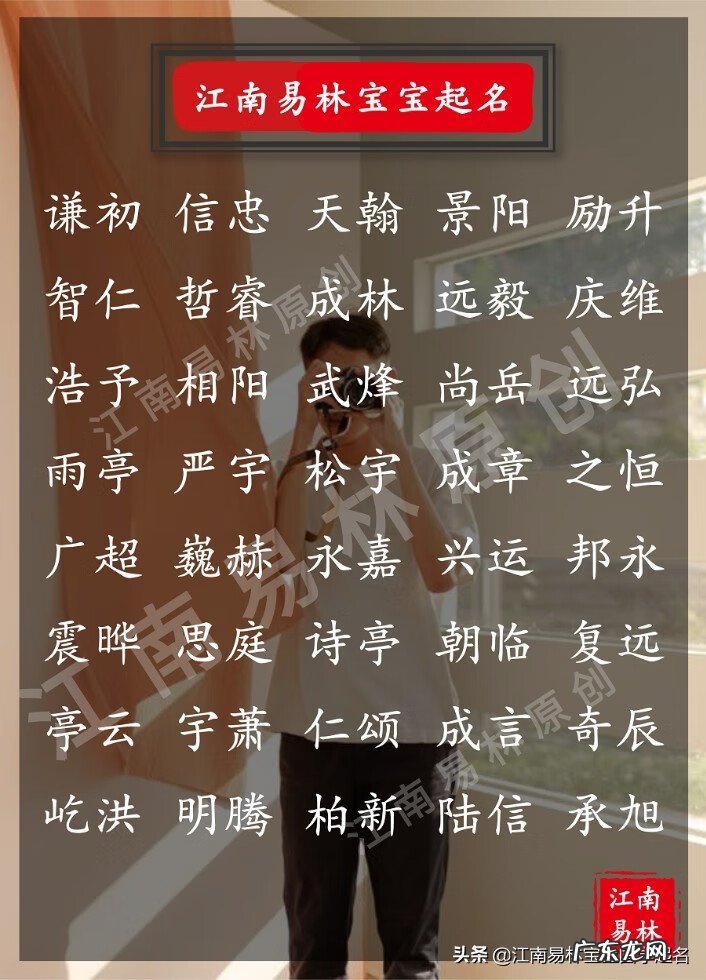 江南易林宝宝起名
谦初 信忠 天翰 景阳 励升
智仁 哲睿 成林 远毅 庆维
浩予 相阳 武烽 尚岳 远弘
雨亭 严宇 松宇 成章 之恒
广超 巍赫 永嘉 兴运 邦永
震晔 思庭 诗亭 朝临 复远
亭云 宇萧 仁颂 成言 奇辰
屹洪 明腾 柏新 陆信 承旭
江南易林原创
江南易林原创
江南易林原创
江南
易林
头条 @江南易林宝宝起名
广东龙网